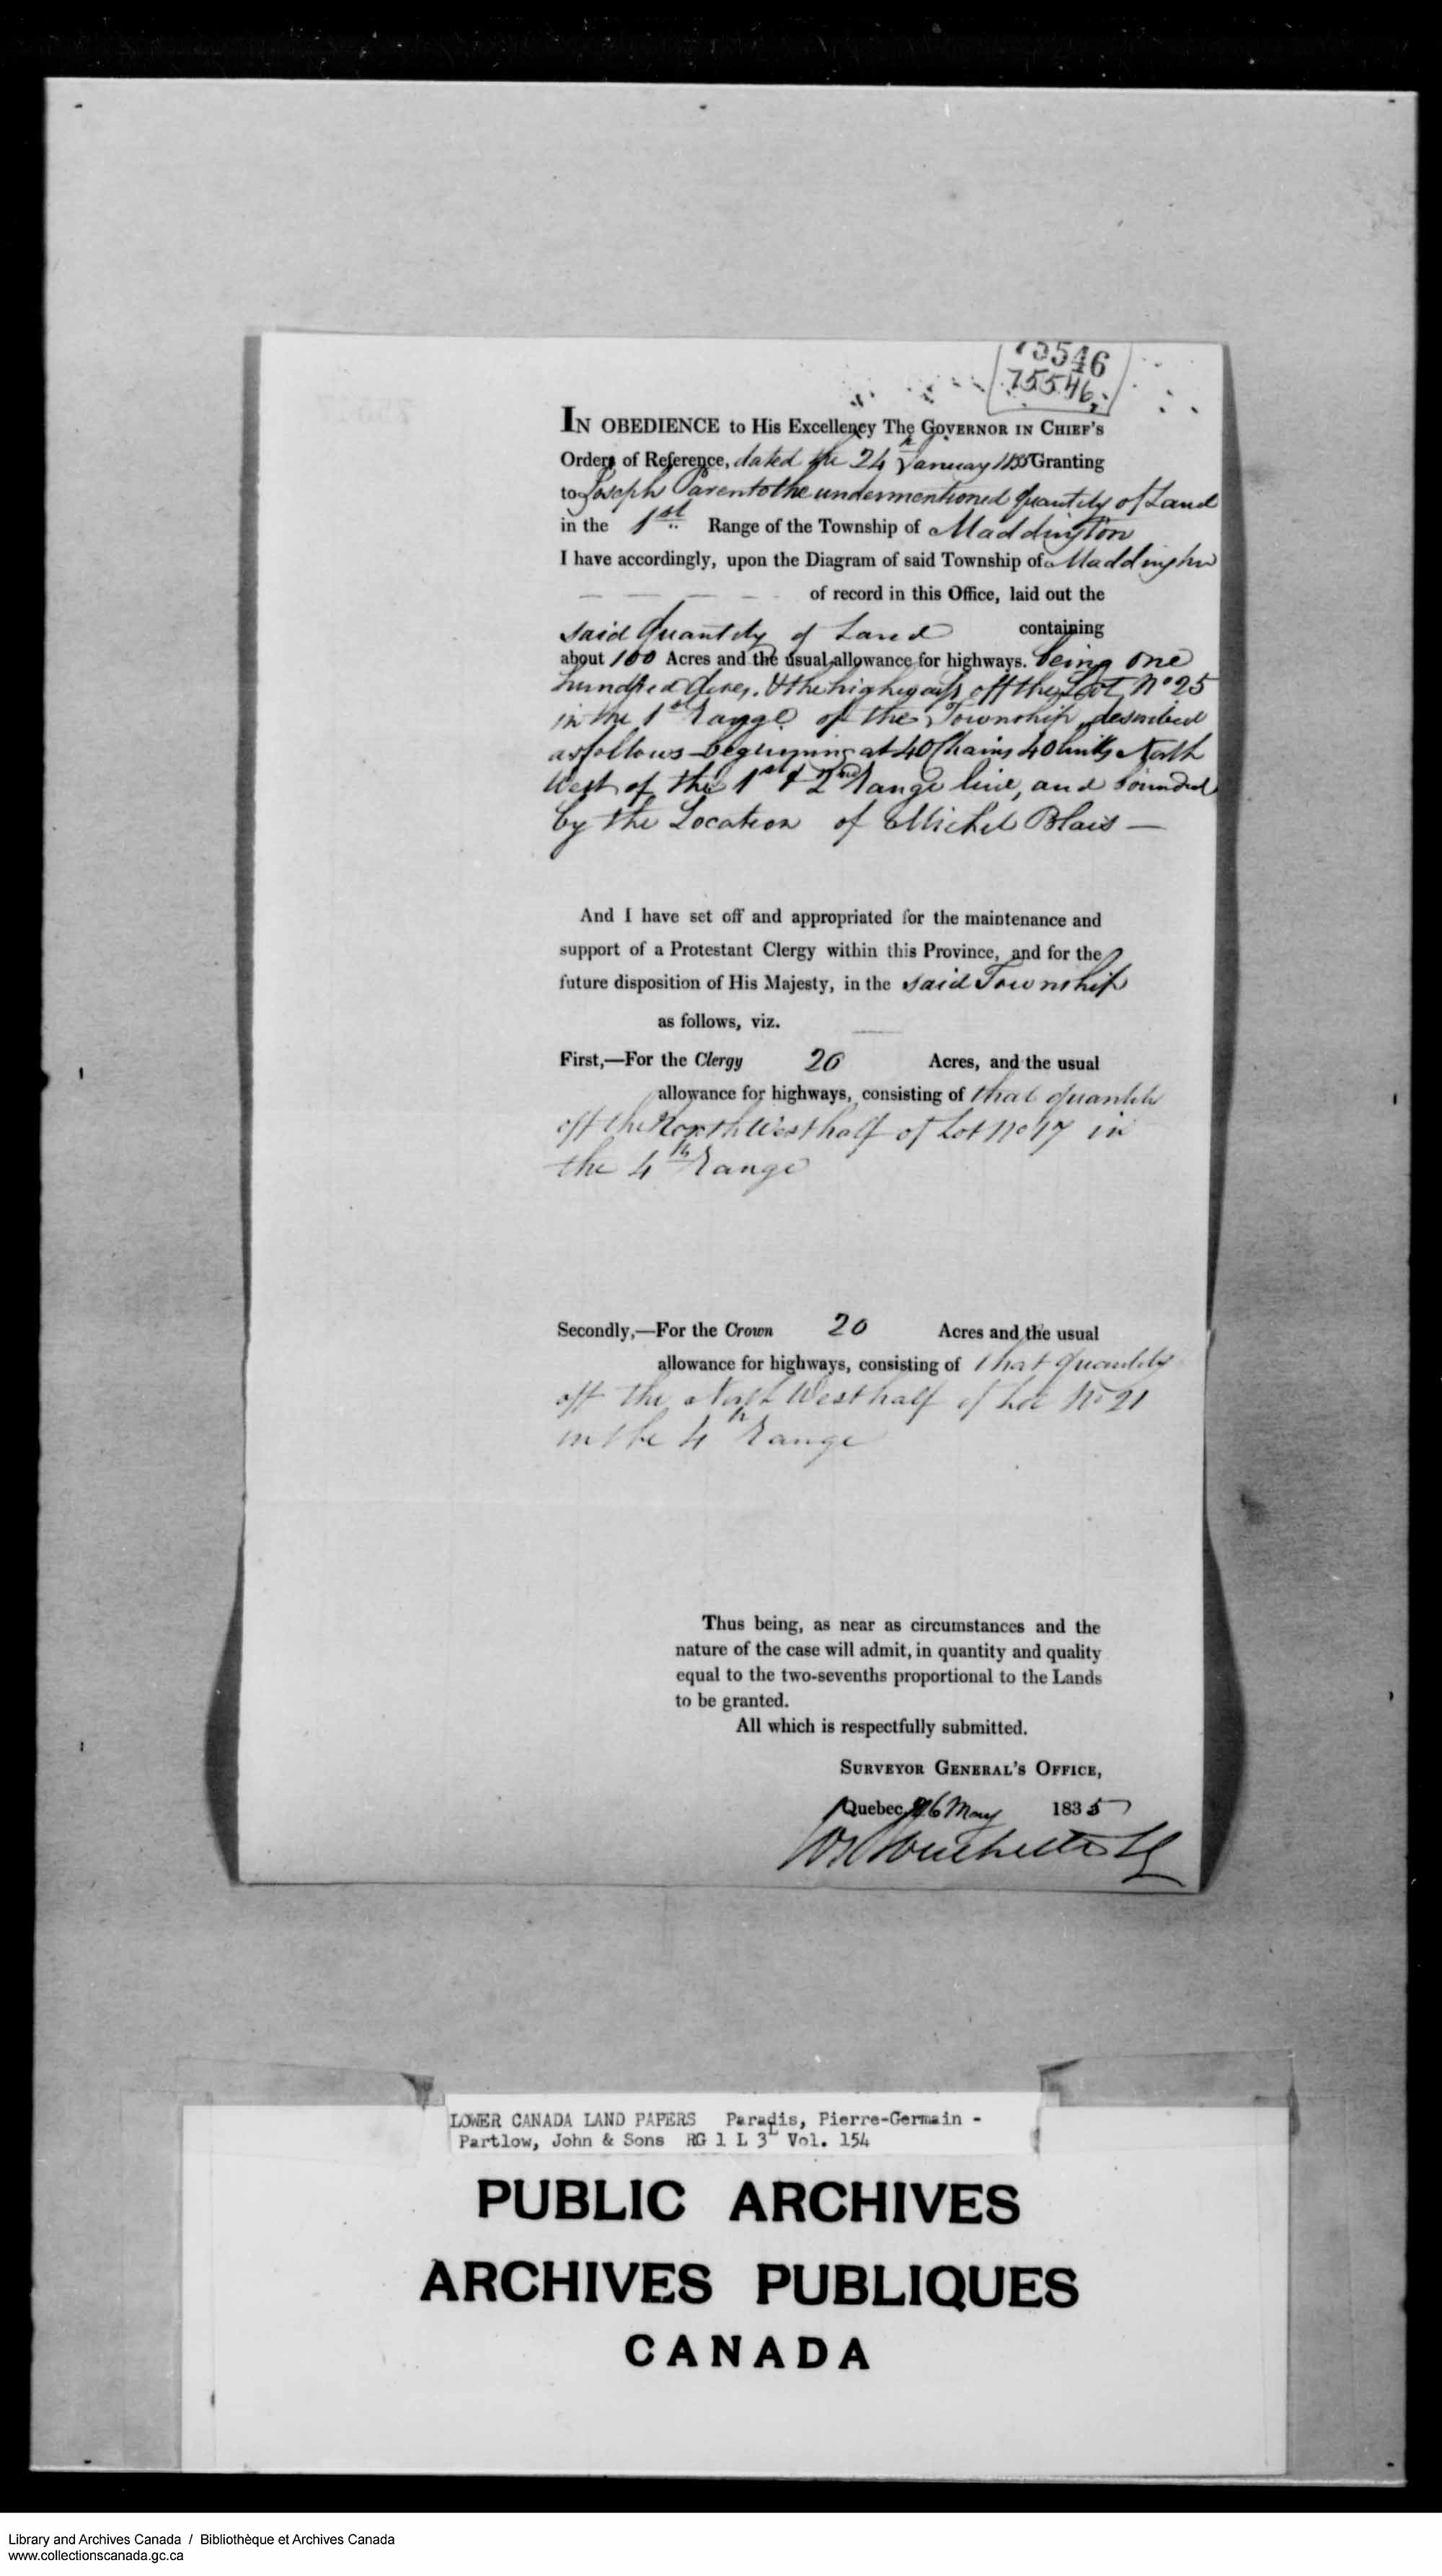 75546
75546
IN OBEDIENCE to His Excellency The GOVERNOR IN CHIEF'S
Orders of Reference, dated the 24th January 1835 Granting
to Joseph Parent the undermentioned quantity of Land
in the 1st Range of the Township of Maddington
I have accordingly, upon the Diagram of said Township of Maddington
of record in this Office, laid out the
said quantity of Land containing
about 100 Acres and the usual allowance for highways. being one
hundred Acres, & the highways off the Lot No 25
in the 1st Range of the Township, described
as follows beginning at 40 Chains 40 links North
West of the 1st & 2nd Range line, and bounded
by the Location of Michel Blais —
And I have set off and appropriated for the maintenance and
support of a Protestant Clergy within this Province, and for the
future disposition of His Majesty, in the said Township
as follows, viz.
First,—For the Clergy 20 Acres, and the usual
allowance for highways, consisting of that quantity
off the North West half of Lot No 17 in
the 4th Range
Secondly,—For the Crown 20 Acres and the usual
allowance for highways, consisting of that quantity
off the North West half of Lot No 21
in the 4th Range
Thus being, as near as circumstances and the
nature of the case will admit, in quantity and quality
equal to the two-sevenths proportional to the Lands
to be granted.
All which is respectfully submitted.
SURVEYOR GENERAL'S OFFICE,
Quebec, 26 May 1835
LOWER CANADA LAND PAPERS Paradis, Pierre-Germain -
Partlow, John & Sons RG 1 L 3L Vol. 154
PUBLIC ARCHIVES
ARCHIVES PUBLIQUES
CANADA
Library and Archives Canada / Bibliothèque et Archives Canada
www.collectionscanada.gc.ca